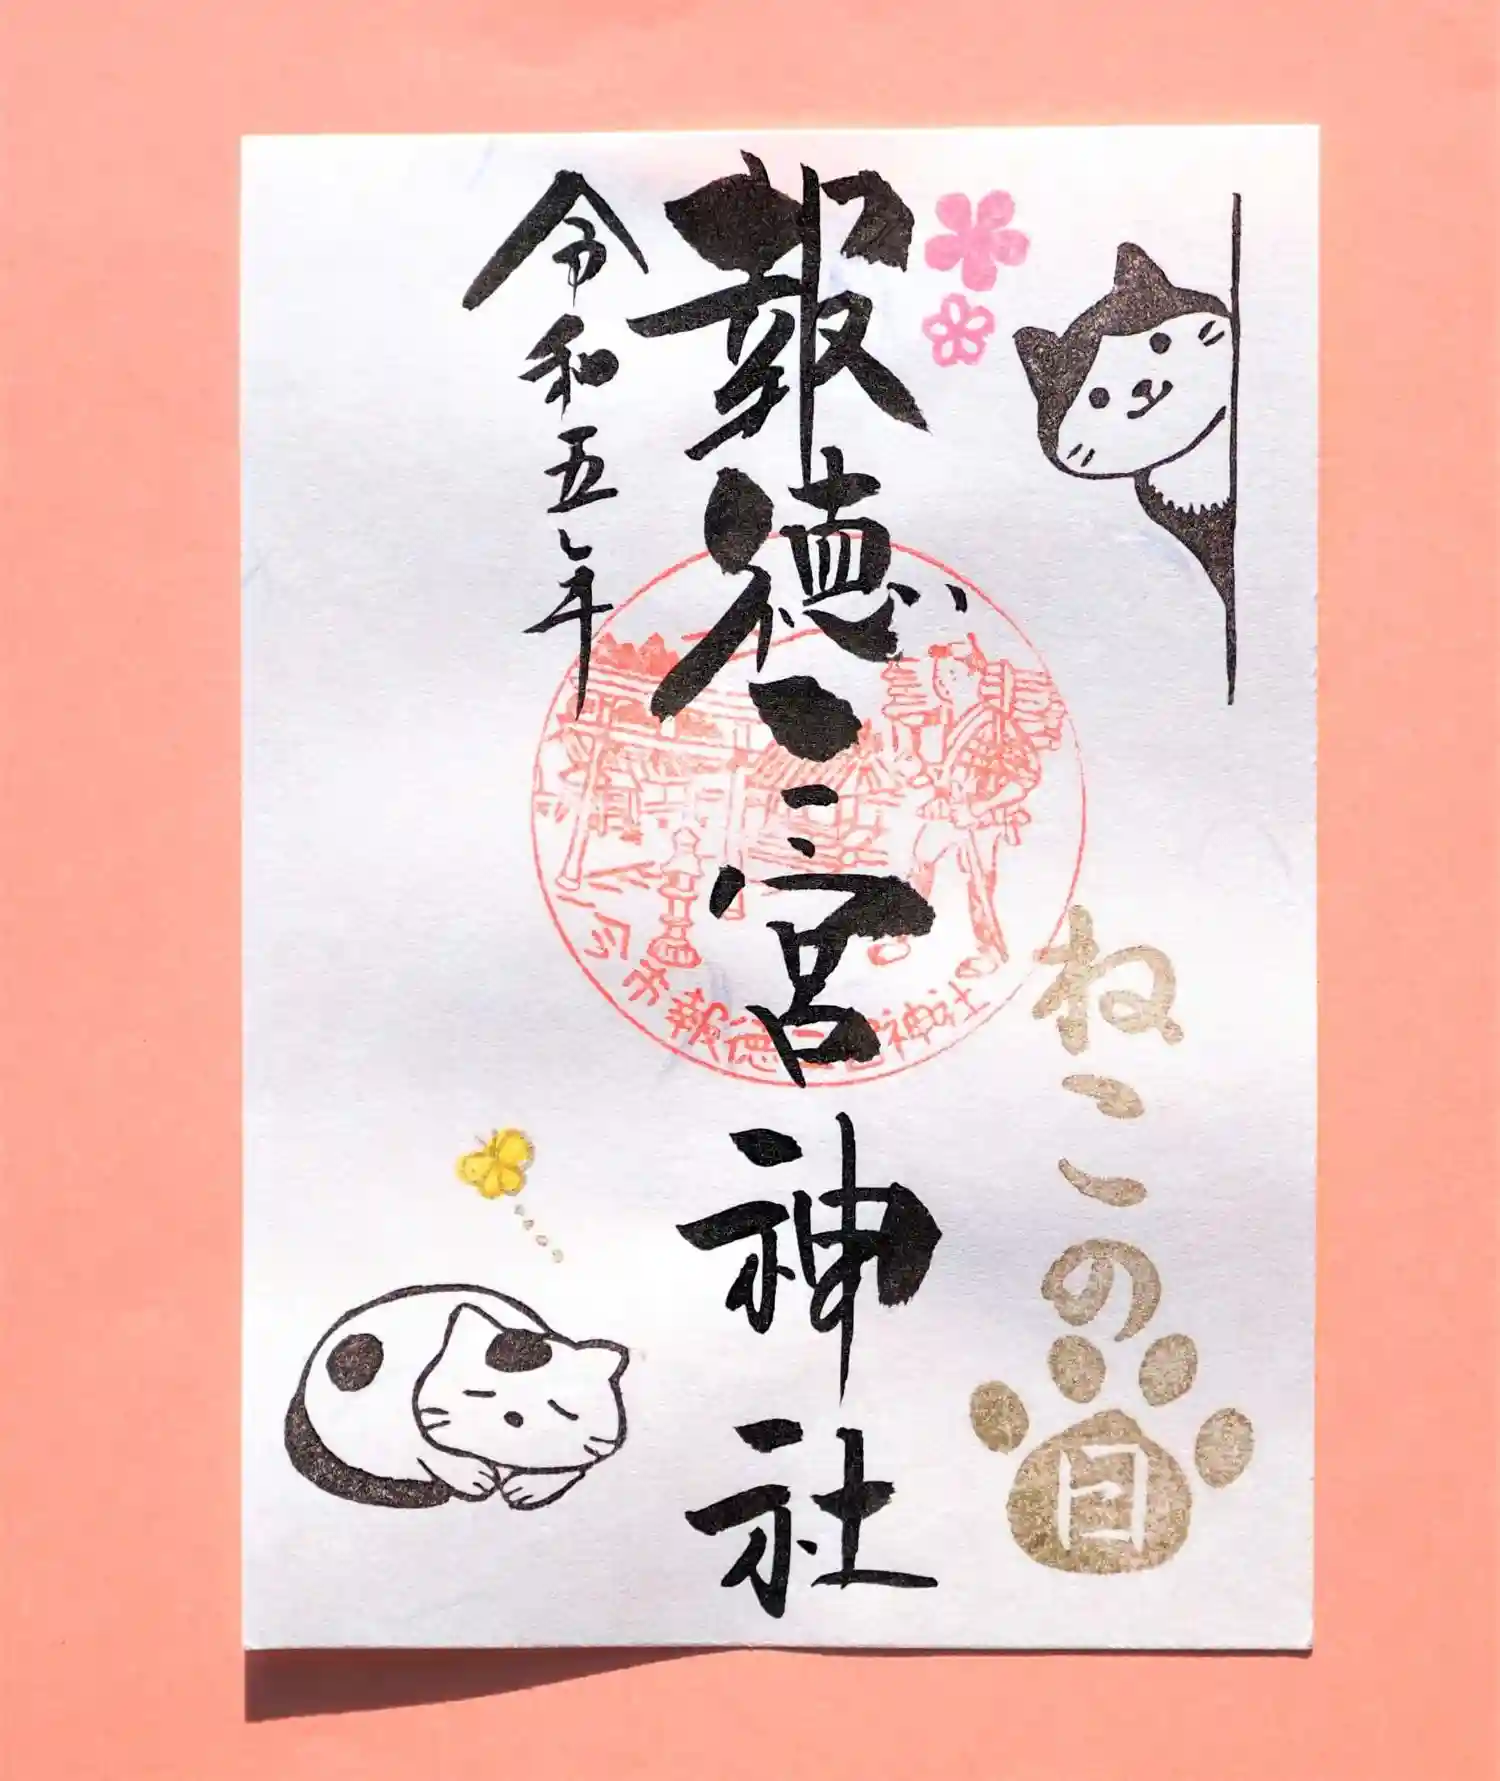 ねこの日
報徳二宮神社
令和五年
今市報徳二宮神社